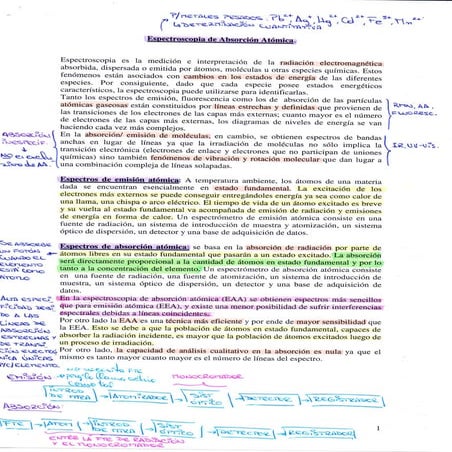 P/METALES PESADOS: Pb²⁺, Ag⁺, Hg²⁺, Cd²⁺, Fe³⁺, Mn²⁺
↳ DETERMINACIÓN CUANTITATIVA
Espectroscopia de Absorción Atómica.
Espectroscopia es la medición e interpretación de la radiación electromagnética
absorbida, dispersada o emitida por átomos, moléculas u otras especies químicas. Estos
fenómenos están asociados con cambios en los estados de energía de las diferentes
especies. Por consiguiente, dado que cada especie posee estados energéticos
característicos, la espectroscopia puede utilizarse para identificarlas.
Tanto los espectros de emisión, fluorescencia como los de absorción de las partículas
atómicas gaseosas están constituidos por líneas estrechas y definidas que provienen de
las transiciones de los electrones de las capas más externas; cuanto mayor es el número
de electrones de las capas más externas, los diagramas de niveles de energía se van
haciendo cada vez más complejos.
RMN, AA.
En la absorción/ emisión de moléculas, en cambio, se obtienen espectros de bandas
anchas en lugar de líneas ya que la irradiación de moléculas no sólo implica la
transición electrónica (electrones de enlace y electrones que no participan de uniones
químicas) sino también fenómenos de vibración y rotación molecular que dan lugar a
una combinación compleja de líneas solapadas.
ABSORCIÓN
IR, UV-VIS.
Espectros de emisión atómica: A temperatura ambiente, los átomos de una materia
dada se encuentran esencialmente en estado fundamental. La excitación de los
electrones más externos se puede conseguir entregándoles energía ya sea como calor de
una llama, una chispa o arco eléctrico. El tiempo de vida de un átomo excitado es breve
y su vuelta al estado fundamental va acompañada de emisión de radiación y emisiones
de energía en forma de calor. Un espectrómetro de emisión atómica consiste en una
fuente de radiación, un sistema de introducción de muestra y atomización, un sistema
óptico de dispersión, un detector y una base de adquisición de datos.
Espectros de absorción atómica: se basa en la absorción de radiación por parte de
átomos libres en su estado fundamental que pasarán a un estado excitado. La absorción
será directamente proporcional a la cantidad de átomos en estado fundamental y por lo
tanto a la concentración del elemento. Un espectrómetro de absorción atómica consiste
en una fuente de radiación, una fuente de atomización, un sistema de introducción de
muestra, un sistema óptico de dispersión, un detector y una base de adquisición de
datos.
SE ABSORBE
UN FOTÓN
CUANDO EL
ELEMENTO
ESTÁ COMO
ÁTOMO
En la espectroscopia de absorción atómica (EAA) se obtienen espectros más sencillos
que para emisión atómica (EEA), y existe una menor posibilidad de sufrir interferencias
espectrales debidas a líneas coincidentes.
Por otro lado la EAA es una técnica más eficiente y por ende de mayor sensibilidad que
la EEA. Esto se debe a que la población de átomos en estado fundamental, capaces de
absorber la radiación incidente, es mayor que la población de átomos excitados luego de
un proceso de irradiación.
Por otro lado, la capacidad de análisis cualitativo en la absorción es nula ya que el
mismo es tanto mayor cuanto mayor es el número de líneas del espectro.
ALTA ESPECI
FICIDAD DEBI
DO A LAS
LÍNEAS DE
ABSORCIÓN
ESTRECHAS Y
DE TRANSI
CIÓN ELECTRÓ
NICA ÚNICAS
P/C/ELEMENTO.
EMISIÓN
MONOCROMADOR
INTROD DE MTRA → ATOMIZADOR → SIST ÓPTICO → DETECTOR → REGISTRADOR
ABSORCIÓN:
FTE → ATOM → INTROD DE MTRA → SIST ÓPTICO → DETECTOR → REGISTRADOR
ENTRE LA FTE DE RADIACIÓN
Y EL MONOCROMADOR
1